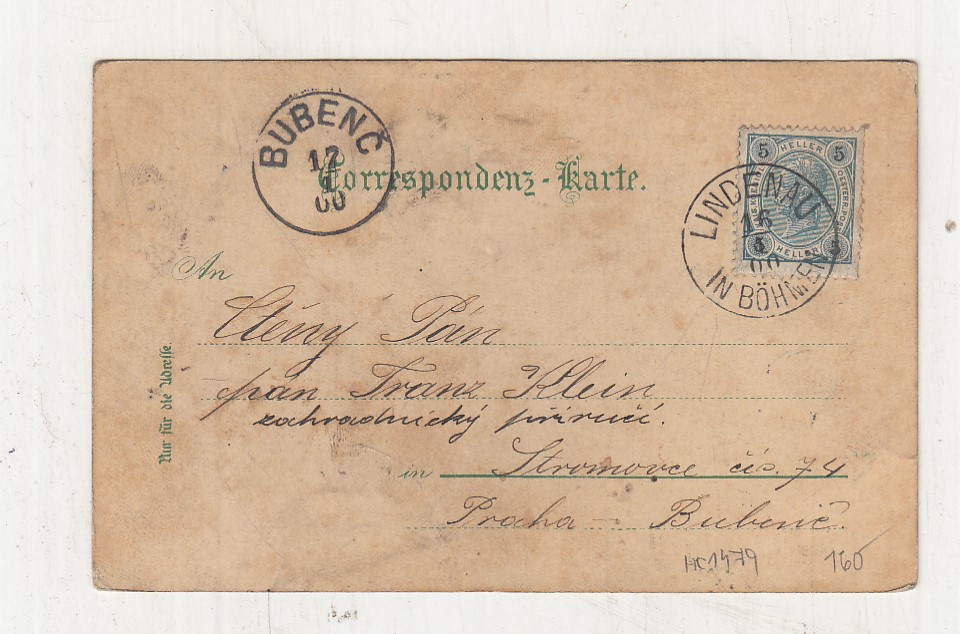 BUBENČ
17
1
00
Correspondenz-Karte.
5 HELLER 5
5 HELLER 5
LINDENAU
16
00
IN BÖHMEN
An
Ctěný Pán
pán Franz Klein
zahradnický příručí.
in Stromovce čís. 74
Praha - Bubenč.
Nur für die Adresse.
HC1479 160